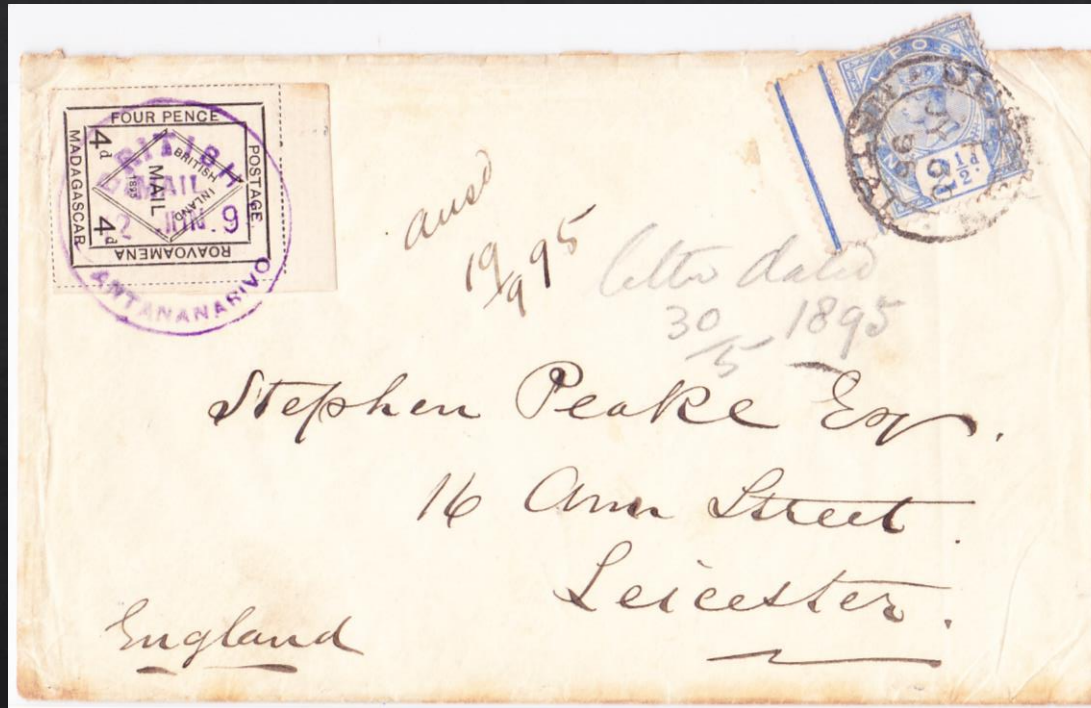 FOUR PENCE
POSTAGE.
ROAVOAMENA
MADAGASCAR
4d
4d
BRITISH
INLAND
MAIL
1895
BRITISH
MAIL
2 JUN. 9
ANTANANARIVO
POS
N
2½d
NATAL
95
ansd
19/9 95
letter dated
30/5 1895
Stephen Peake Esq.
16 Ann Street.
Leicester.
England